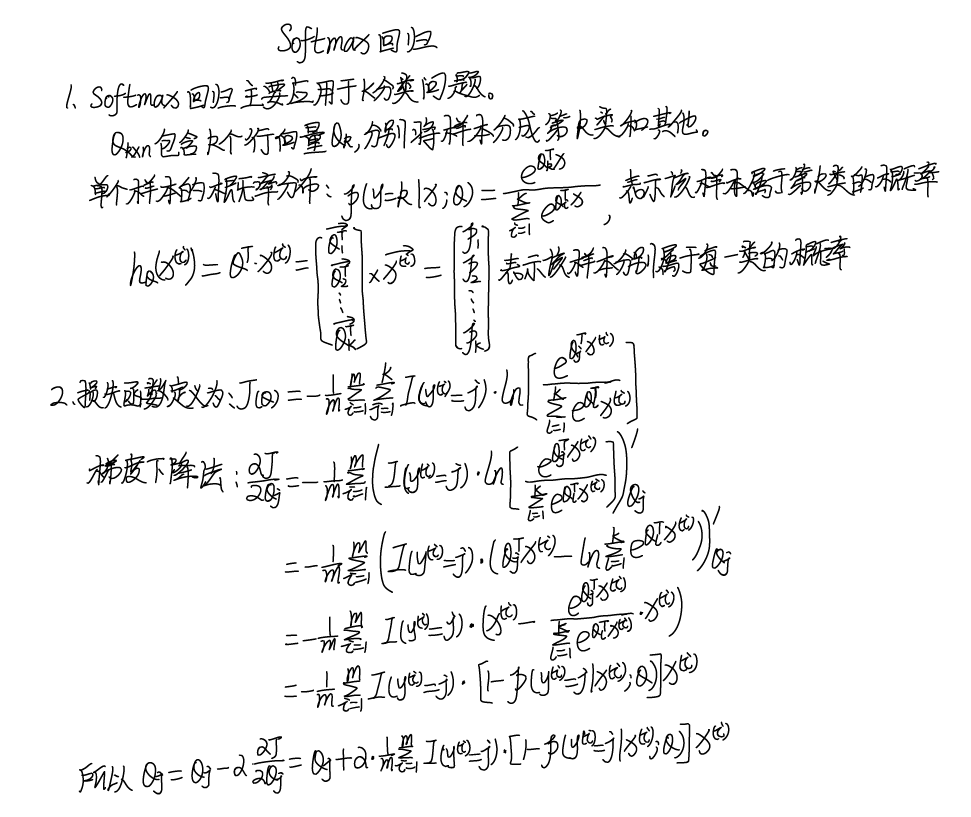 Softmax回归
1、Softmax回归主要应用于k分类问题。
θₖₓₙ包含k个行向量θₖ,分别将样本分成第k类和其他。
单个样本的概率分布：p(y=k|x;θ) = e^{θₖᵀx} / ∑_{i=1}^{k} e^{θᵢᵀx}，表示该样本属于第k类的概率
h_θ(x^{(i)}) = θᵀ·x^{(i)} = [θ₁ᵀ θ₂ᵀ ⋯ θₖᵀ] × x^{(i)} = [p₁ p₂ ⋮ pₖ] 表示该样本分别属于每一类的概率
2、损失函数定义为：J(θ) = -1/m ∑_{i=1}^{m} ∑_{j=1}^{k} I(y^{(i)}=j)·ln[e^{θⱼᵀx^{(i)}} / ∑_{l=1}^{k} e^{θₗᵀx^{(i)}}]
梯度下降法：∂J/∂θⱼ = -1/m ∑_{i=1}^{m} (I(y^{(i)}=j)·ln[e^{θⱼᵀx^{(i)}} / ∑_{l=1}^{k} e^{θₗᵀx^{(i)}}])'_{θⱼ}
= -1/m ∑_{i=1}^{m} (I(y^{(i)}=j)·(θⱼᵀx^{(i)} - ln∑_{l=1}^{k} e^{θₗᵀx^{(i)}}))'_{θⱼ}
= -1/m ∑_{i=1}^{m} I(y^{(i)}=j)·(x^{(i)} - e^{θⱼᵀx^{(i)}} / ∑_{l=1}^{k} e^{θₗᵀx^{(i)}}·x^{(i)})
= -1/m ∑_{i=1}^{m} I(y^{(i)}=j)·[1-p(y^{(i)}=j|x^{(i)};θ)]x^{(i)}
所以 θⱼ = θⱼ - α ∂J/∂θⱼ = θⱼ + α·1/m ∑_{i=1}^{m} I(y^{(i)}=j)·[1-p(y^{(i)}=j|x^{(i)};θ)]x^{(i)}